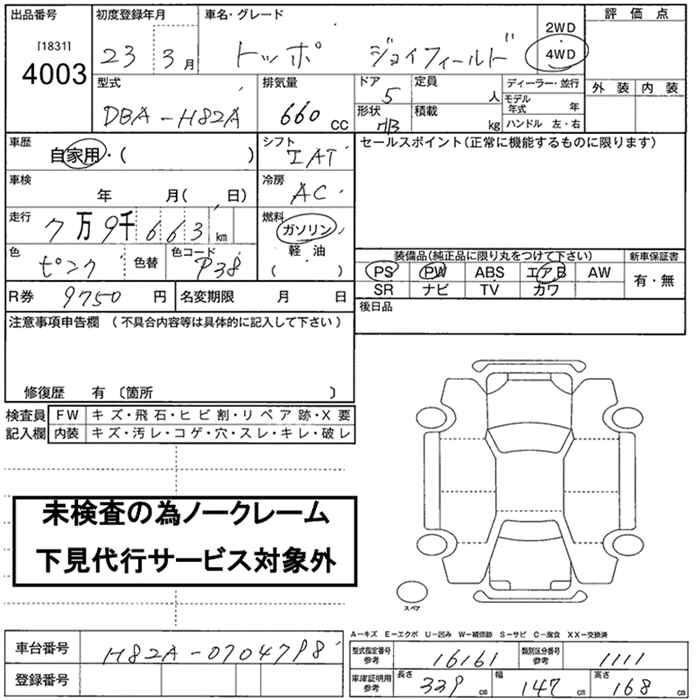 出品番号 初度登録年月 車名・グレード 2WD 評価点
[1831] 4003 23 3月 トッポ ジョイフィールド 4WD 外装 内装
型式 排気量 ドア 定員 ディーラー・並行
DBA-H82A 660 CC 5 人 モデル年式 年
形状 HB 積載 kg ハンドル 左・右
車歴 自家用・( ) シフト IAT セールスポイント(正常に機能するものに限ります)
車検 年 月( 日) 冷房 AC
走行 7万9千663 km 燃料 ガソリン
軽・油
( )
色 ピンク 色替 色コード P38
装備品(純正品に限り丸をつけて下さい) 新車保証書
PS PW ABS エアB AW 有・無
SR ナビ TV カワ
R券 9750 円 名変期限 月 日 後日品
注意事項申告欄 (不具合内容等は具体的に記入して下さい)
修復歴 有 〔箇所 〕
検査員 FW キズ・飛石・ヒビ割・リペア跡・X要
記入欄 内装 キズ・汚レ・コゲ・穴・スレ・キレ・破レ
未検査の為ノークレーム
下見代行サービス対象外
スペア
A-キズ E-エクボ U-凹み W-補修跡 S-サビ C-腐食 XX-交換済
車台番号 H82A-0704798
登録番号
型式指定番号 参考 16161 類別区分番号 参考 1111
車庫証明用 参考 長さ 339 cm 幅 147 cm 高さ 168 cm